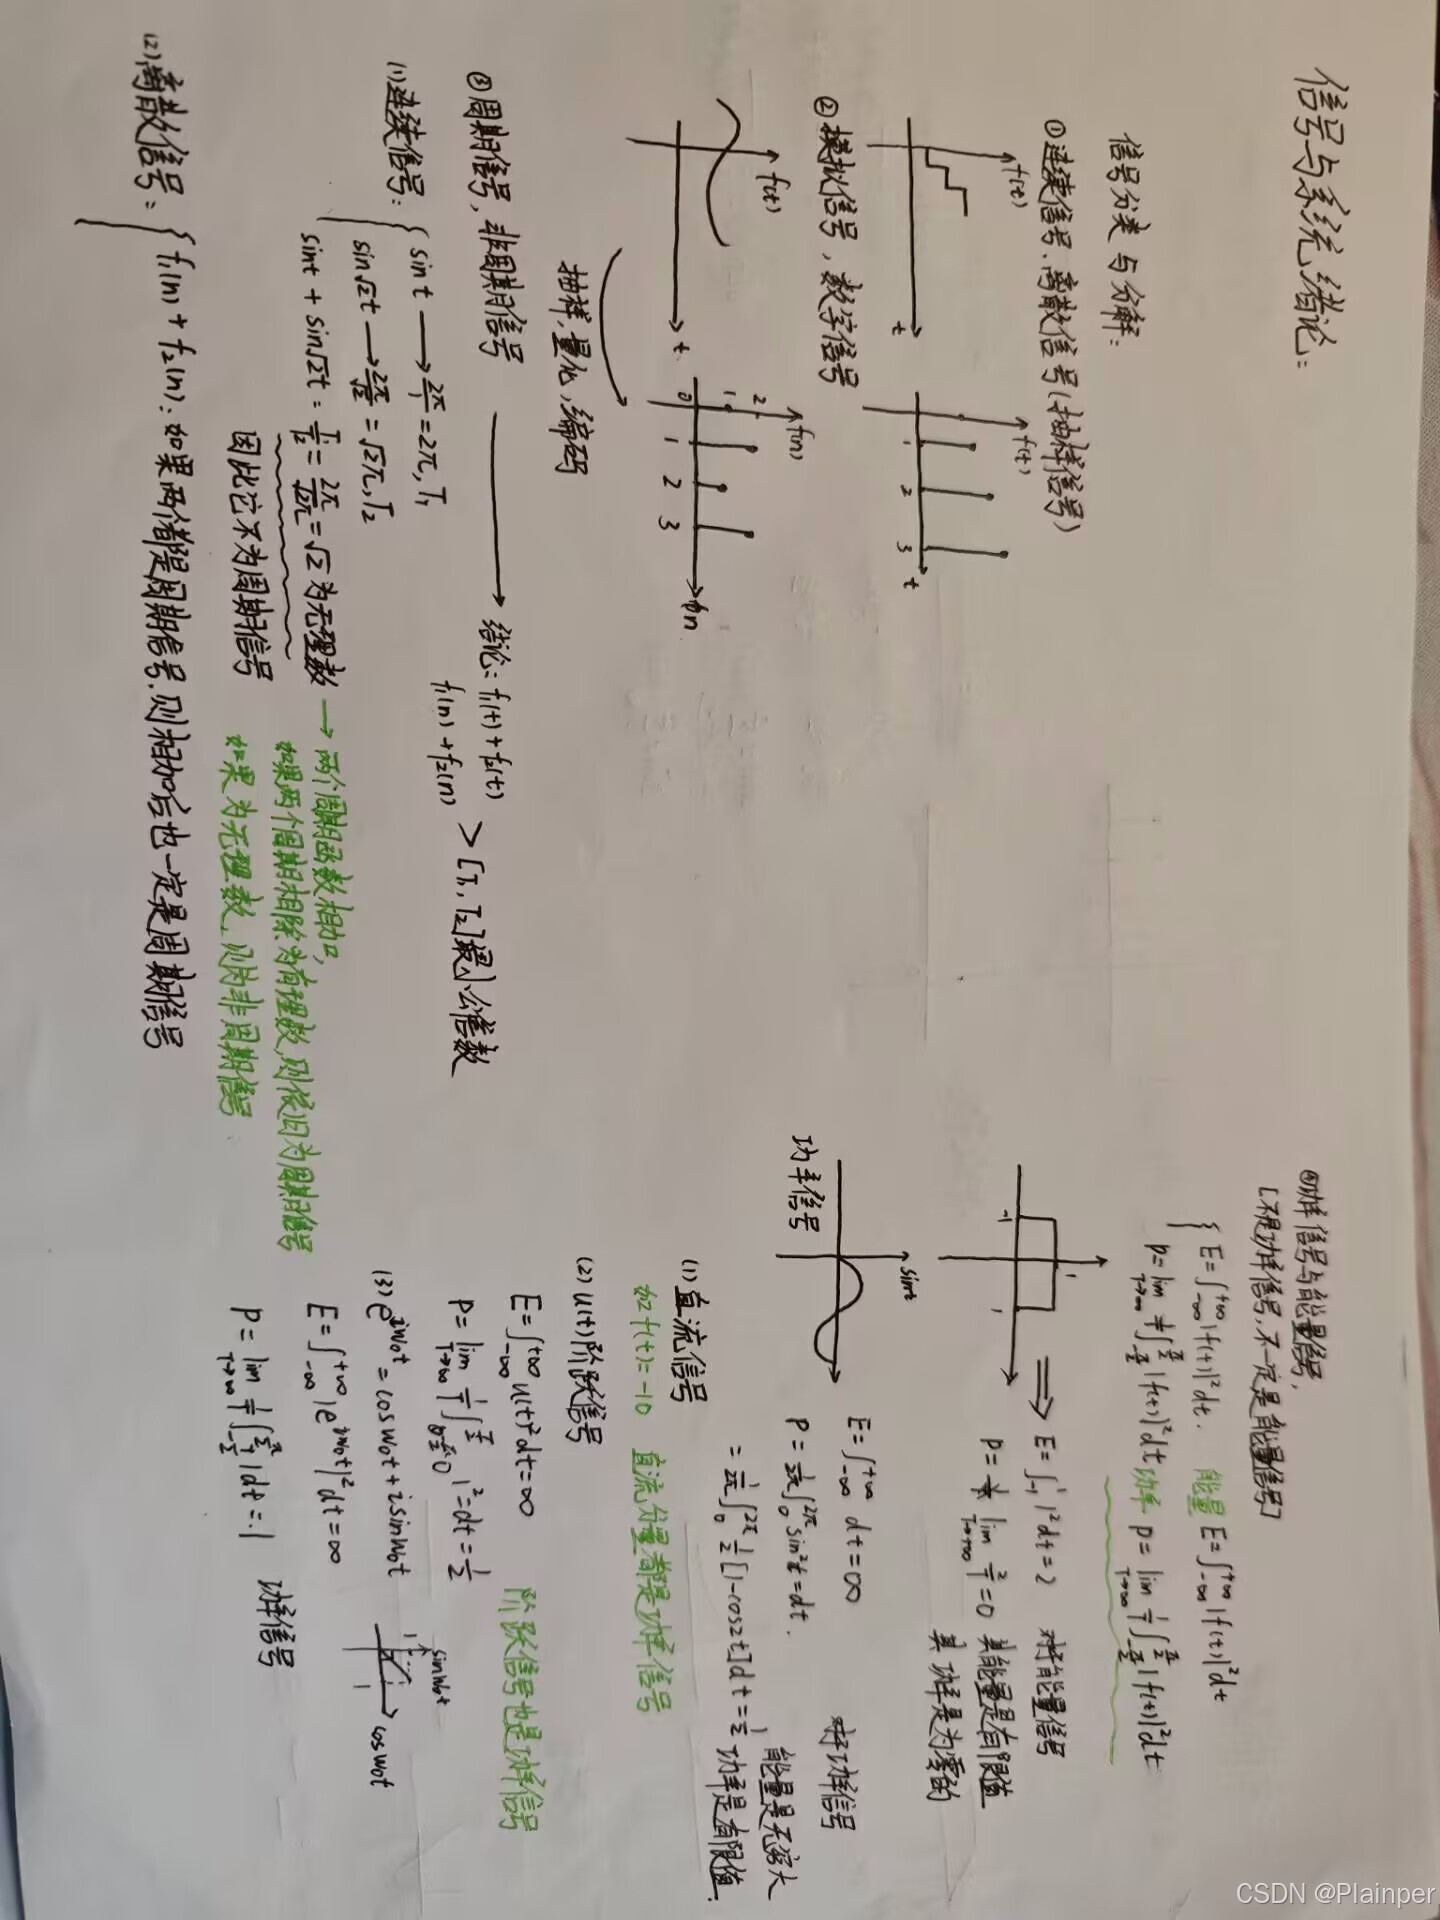 信号与系统绪论:
信号分类与分解:
①连续信号、离散信号(抽样信号)
f(t)
t
f(t)
1 2 3 t
②模拟信号,数字信号
f(t)
t
抽样,量化,编码
f(n)
2
1
0 1 2 3 n
③周期信号,非周期信号 → 结论: f₁(t)+f₂(t)
f₁(n)+f₂(n) > [T₁,T₂]最小公倍数
(1)连续信号: { sint → 2π/1 = 2π, T₁
sin√2t → 2π/√2 = √2π, T₂
sint + sin√2t = T₁/T₂ = 2π/√2π = √2 为无理数 → 两个周期函数相加,
因此它不为周期信号
如果两个周期相除为有理数,则依旧为周期信号
如果为无理数,则为非周期信号
(2)离散信号: { f₁(n) + f₂(n): 如果两个都是周期信号,则相加后也一定是周期信号
④功率信号与能量信号,
[不是功率信号,不一定是能量信号]
{ E=∫_{-∞}^{+∞}|f(t)|²dt. 能量 E=∫_{-∞}^{+∞}|f(t)|²dt
P=lim_{T→∞} 1/T ∫_{-T/2}^{T/2}|f(t)|²dt 功率 P=lim_{T→∞} 1/T ∫_{-T/2}^{T/2}|f(t)|²dt
-1 1 1
⇒ E=∫_{-1}^{1} 1²dt=2 对于能量信号
P= lim_{T→+∞} 2/T =0 其能量是有限值
其功率是为零的
功率信号
sint
E=∫_{-∞}^{+∞} dt=∞ 对于功率信号
P=1/2π ∫_{0}^{2π} sin²t=dt.
=1/2π ∫_{0}^{2π} 1/2[1-cos2t]dt=1/2 能量是无穷大
功率是有限值.
(1)直流信号
如 f(t)=-10 直流分量都是功率信号
(2)u(t)阶跃信号
E=∫_{-∞}^{+∞} u(t)²dt=∞
P=lim_{T→∞} 1/T ∫_{0}^{T/2} 1²=dt=1/2 阶跃信号也是功率信号
(3) e^{iw₀t}=cosw₀t+isinw₀t
sinw₀t
1
1
cosw₀t
E=∫_{-∞}^{+∞}|e^{iw₀t}|²dt=∞
P=lim_{T→∞} 1/T ∫_{-T/2}^{T/2} 1dt=1 功率信号
CSDN @Plainper